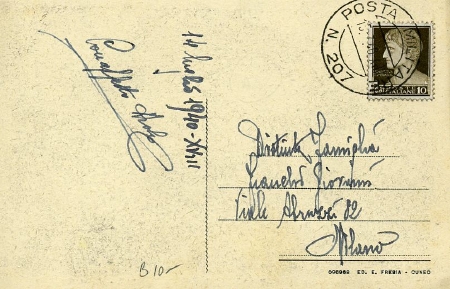 14 luglio 1940-XVIII
Con affetto
POSTA MILITARE
N. 207
POSTE ITALIANE 10
Distinta Famiglia
Giovanni
Viale Abruzzi 82
Milano
B 10-
ED. E. FREBIA - CUNEO